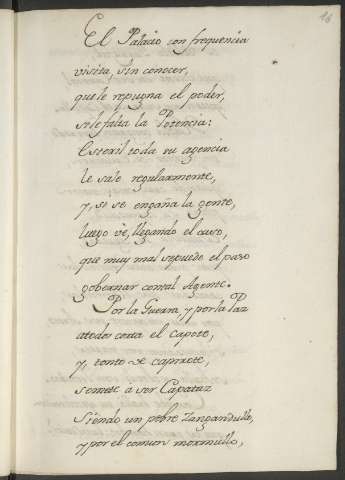 16
El Palacio con frequencia
visita, sin conocer,
que le repugna el poder,
si le falta la Potencia:
Esteril toda su agencia
le sale regularmente,
y, si se engaña la gente,
luego vè, llegando el caso,
que muy mal se puede el paso
gobernar con tal Agente.
Por la Guerra, y por la Paz
atodos corta el Capote,
y, tonto de capirote,
se mete a ser Capataz
Siendo un pobre Zangandullo,
y por el comun murmullo,